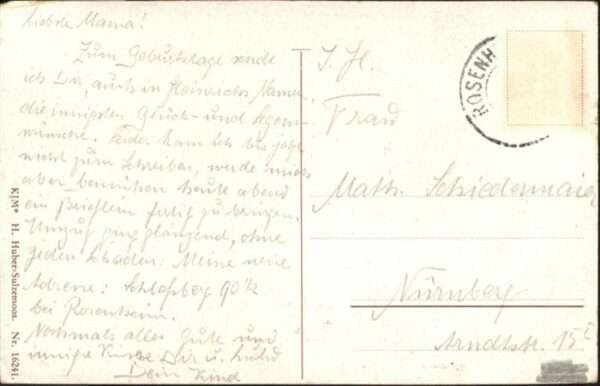 Liebste Mama!
Zum Geburtstage sende
ich Dir, auch in Heinrichs Namen,
die innigsten Glück- und Segens-
wünsche. Leider kam ich bis jetzt
nicht zum Schreiben, werde mich
aber bemühen heute abend
ein Brieflein fertig zu bringen.
Umzug ging glänzend, ohne
jeden Schaden. Meine neue
Adresse: Schloßberg 90
bei Rosenheim.
Nochmals alles Gute und
innige Küsse Dir u.
Dein Kind
K|M* H. Huber-Sulzemoos. Nr. 16241.
ROSENH
Frau
Math. Schiedermaier
Nürnberg
Arndtstr. 15